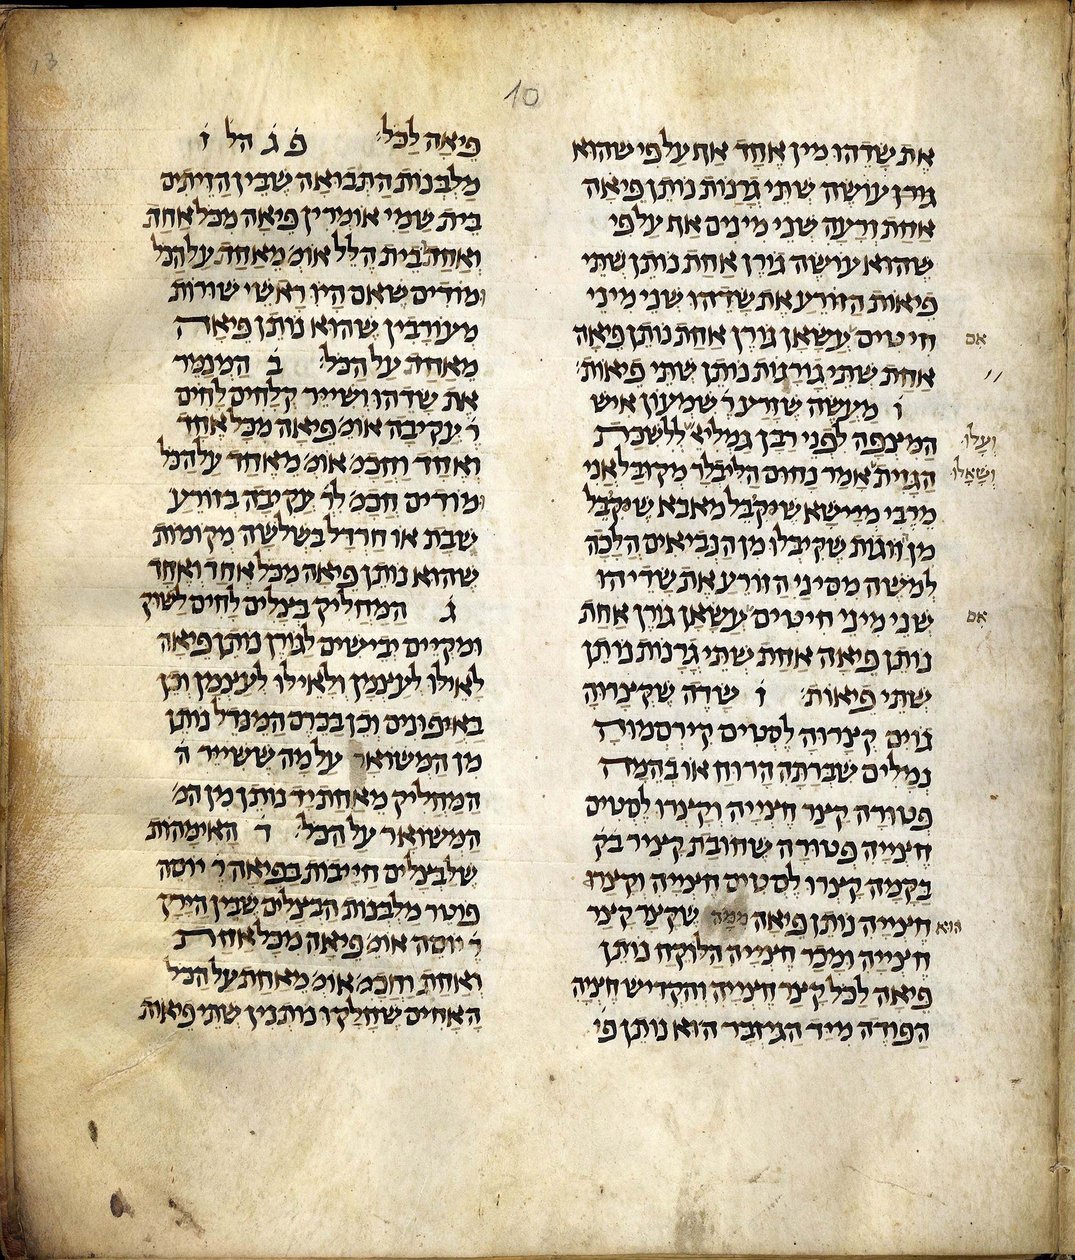 10
13
את שדהו מין אחד אף על פי שהוא
גורן עושה שתי גרנות נותן פיאה
אחת זרעה שני מינים אף על פי
שהוא עושה גורן אחת נותן שתי
פיאות הזורע את שדהו שני מיני
חיטים עשאן גורן אחת נותן פיאה
אם
אחת שתי גורנות נותן שתי פיאות׃
ו מעשה שזרע ר שמעון איש
המיצפה לפני רבן גמליא ללשכת
ועלו
הגזית אמר נחום הליבלר מקובל אני
ושאלו
מרבי מיישא שקיבל מאבא שקיבל
מן זוגות שקיבלו מן הנביאים הלכה
למשה מסיני הזורע את שדיהו
שני מיני חיטים עשאן גורן אחת
אם
נותן פיאה אחת שתי גרנות נותן
שתי פיאות׃ ז שדה שקצרוה
גוים קיצרוה לסטים קירסמוה
נמלים שברתה הרוח או בהמה
פטורה קצר חצייה וקצרו לסטים
חצייה פטורה שחובת קציר בק
בקמה קצרו לסטים חצייה וקצרו
חצייה נותן פיאה ממה שקצר קצר
הוא
חצייה ומכר חצייה הלוקח נותן
פיאה לכל קצר חצייה והקדיש חציה
הפודה מיד הגיזבר הוא נותן פי
פיאה לכל׃ פ ג הל ז
מלבנות התבואה שבין הזיתים
בית שמי אומרין פיאה מכל אחת
ואחת בית הלל אומ׳ מאחת על הכל
ומודים שאם היו ראשי שורות
מעורבין שהוא נותן פיאה
מאחת על הכל׃ ב המנמר
את שדהו ושייר קלחים לחים
ר עקיבה אומ׳ פיאה מכל אחד
ואחד וחכמ׳ אומ׳ מאחד על הכל
ומודים חכמ׳ לר עקיבה בזורע
שבת או חרדל בשלשה מקומות
שהוא נותן פיאה מכל אחד ואחד
ג המחליק בצלים לחים לשוק
ומקיים יבישים לגורן נותן פיאה
לאילו לעצמן ולאילו לעצמן וכן
באיפונים וכן בכרם המגדל נותן
מן המשואר על מה ששייר ה
המחליק מאחת יד נותן מן המ׳
המשואר על הכל׃ ד האימהות
שלבצלים חייבות בפיאה ר יוסה
פוטר מלבנות הבצלים שבין הירק
ר יוסה אומ׳ פיאה מכל אחת
ואחת וחכמ׳ אומ׳ מאחת על הכל
האחים שחלקו נותנין שתי פיאות